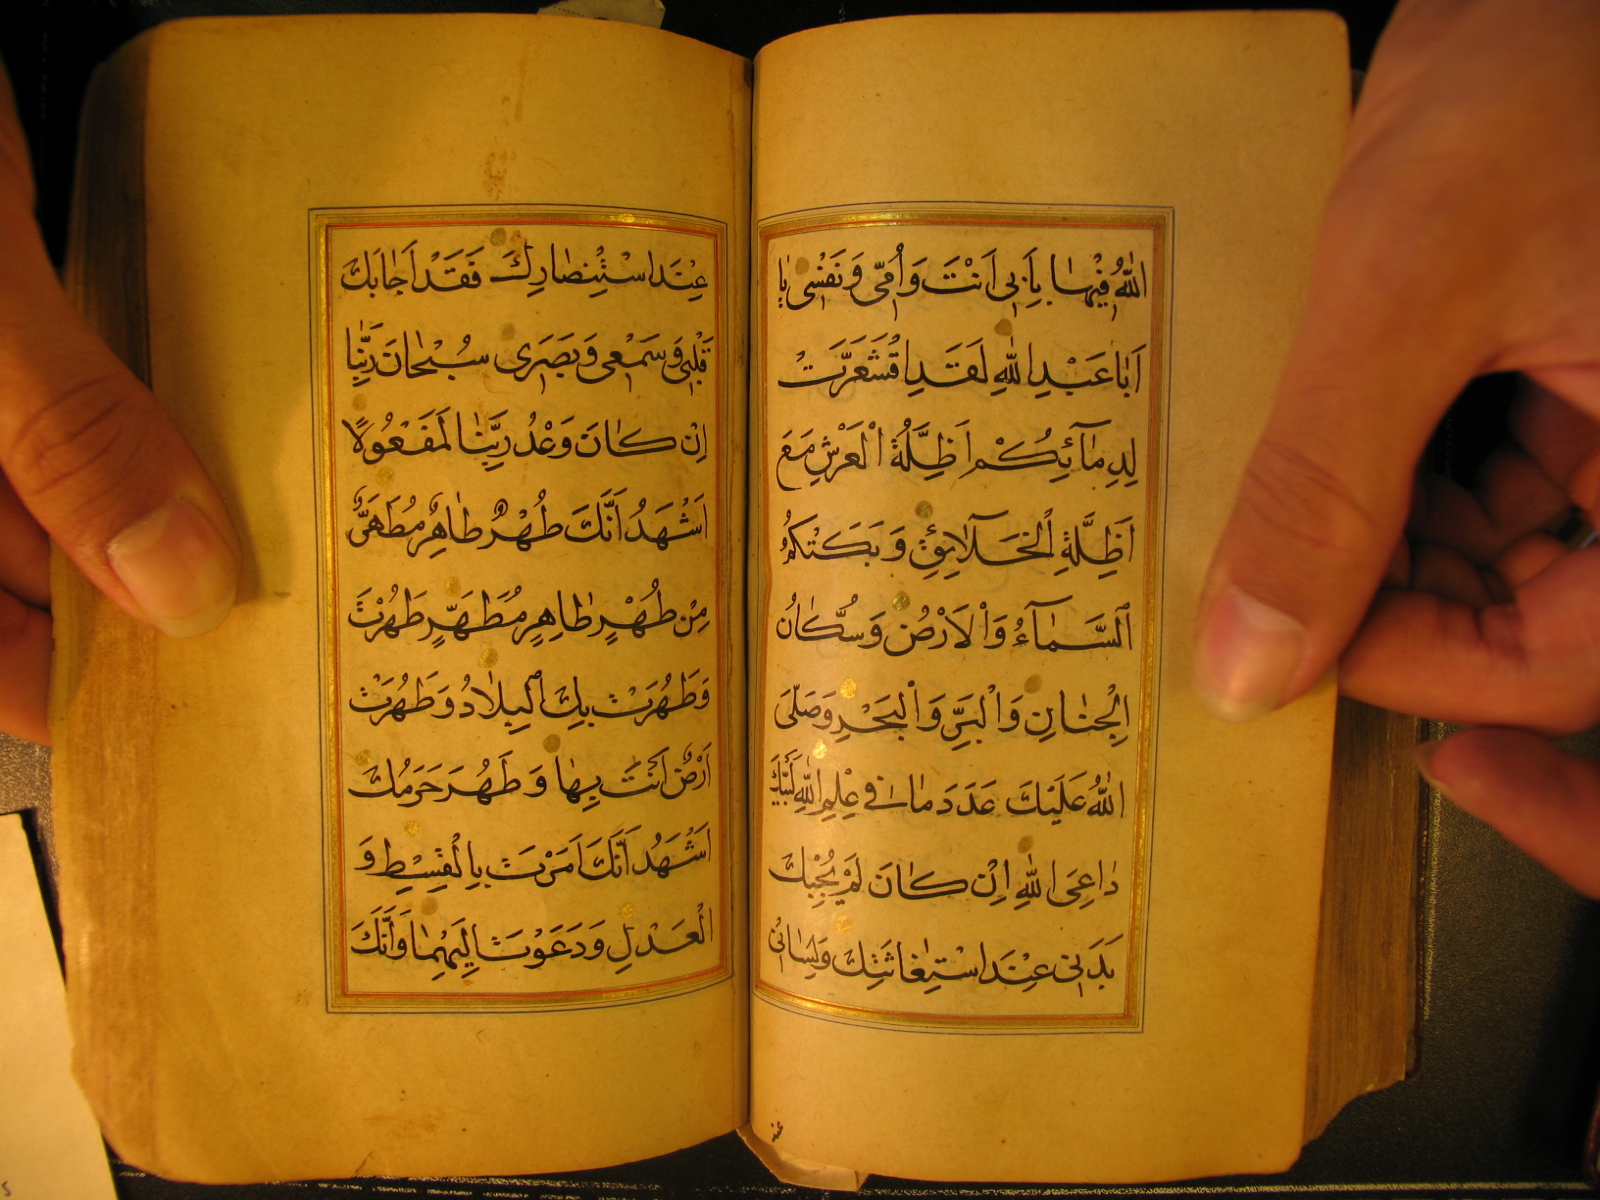 اللّٰهُ فِيْهٰا بِاَبِى اَنْتَ وَاُمّى وَنَفْسِى يٰا
اَبٰا عَبْدِ اللّٰهِ لَقَدِ اقْشَعَرَّتْ
لِدِمٰآئِكُمْ اَظِلَّةُ الْعَرْشِ مَعَ
اَظِلَّةِ الْخَلَآئِقِ وَبَكَتْكُمُ
السَّمٰآءُ وَالْاَرْضُ وَسُكّٰانُ
الْجِنٰانِ وَالْبَرِّ وَالْبَحْرِ وَصَلَّى
اللّٰهُ عَلَيْكَ عَدَدَ مٰا فى عِلْمِ اللّٰهِ لَبَّيْكَ
دٰاعِىَ اللّٰهِ اِنْ كٰانَ لَمْ يُجِبْكَ
بَدَنى عِنْدَ اسْتِغٰاثَتِكَ وَلِسٰانى
عند
عِنْدَ اسْتِنْصٰارِكَ فَقَدْ اَجٰابَكَ
قَلْبى وَسَمْعى وَبَصَرى سُبْحٰانَ رَبِّنٰا
اِنْ كٰانَ وَعْدُ رَبِّنٰا لَمَفْعُولًا
اَشْهَدُ اَنَّكَ طُهْرٌ طٰاهِرٌ مُطَهَّرٌ
مِنْ طُهْرٍ طٰاهِرٍ مُطَهَّرٍ طَهُرْتَ
وَطَهُرَتْ بِكَ الْبِلٰادُ وَطَهُرَتْ
اَرْضٌ اَنْتَ بِهٰا وَطَهُرَ حَرَمُكَ
اَشْهَدُ اَنَّكَ اَمَرْتَ بِالْقِسْطِ وَ
الْعَدْلِ وَدَعَوْتَ اِلَيْهِمٰا وَاَنَّكَ